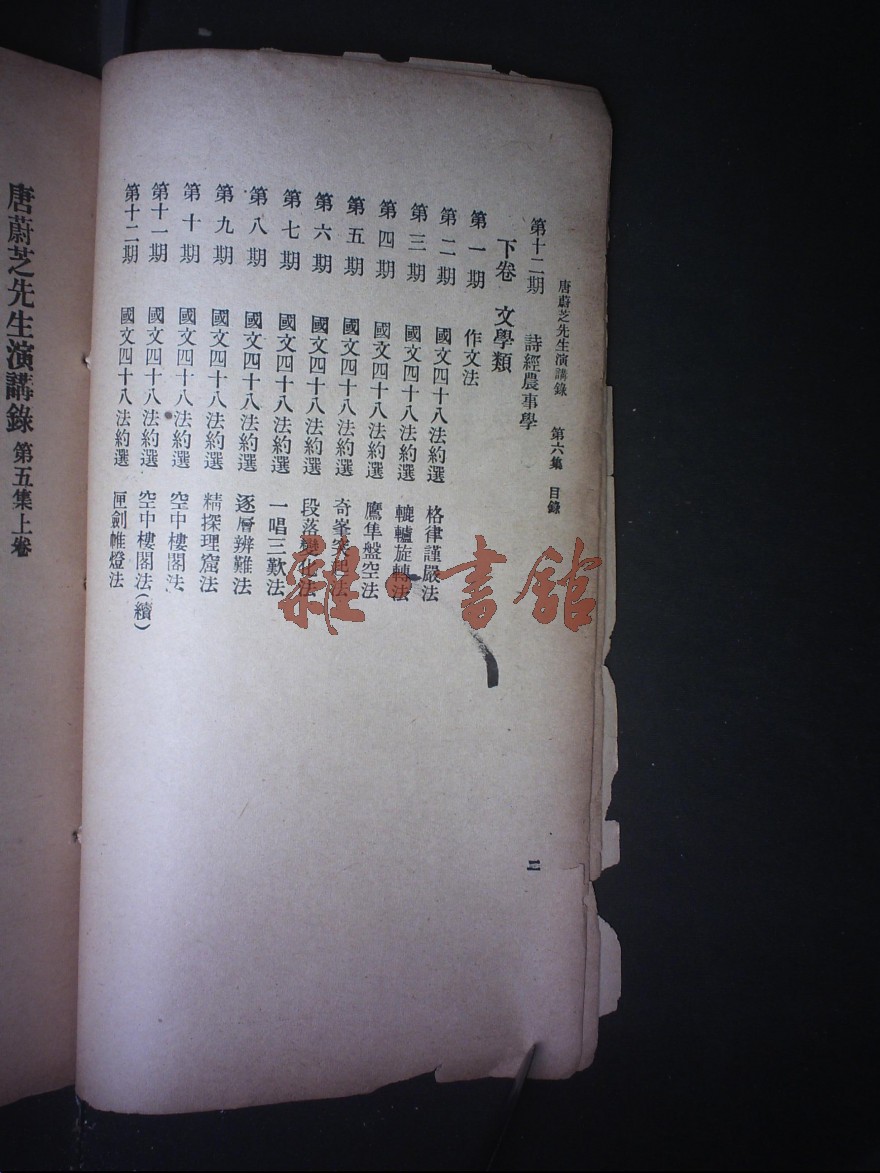 唐蔚芝先生演講錄 第六集 目錄
第十二期 詩經農事學
下卷 文學類
第一期 作文法
第二期 國文四十八法約選 格律謹嚴法
第三期 國文四十八法約選 轆轤旋轉法
第四期 國文四十八法約選 鷹隼盤空法
第五期 國文四十八法約選 奇峯突起法
第六期 國文四十八法約選 段落變化法
第七期 國文四十八法約選 一唱三歎法
第八期 國文四十八法約選 逐層辨難法
第九期 國文四十八法約選 精探理窟法
第十期 國文四十八法約選 空中樓閣法
第十一期 國文四十八法約選 空中樓閣法(續)
第十二期 國文四十八法約選 匣劍帷燈法
二
唐蔚芝先生演講錄 第五集上卷
雜·書館